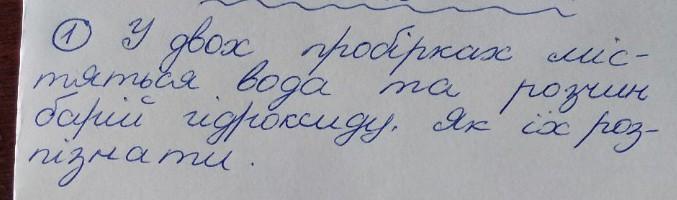 ① У двох пробірках міс-
тяться вода та розчин
барій гідроксиду. Як їх роз-
пізнати.